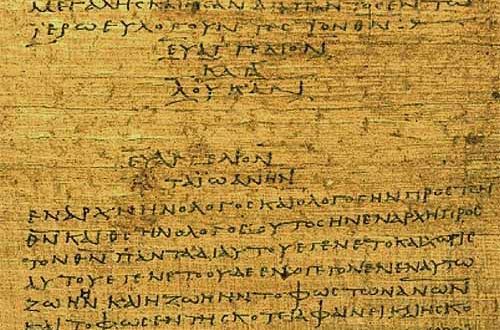 ΜΕΓΑΛΗϹΚΑΙΗϹΑΝΔΙΑΠΑΝΤΟϹΕΝΤΩ
ΙΕΡΩΕΥΛΟΓΟΥΝΤΕϹΤΟΝΘ̅Ν̅
ΕΥΑΓΓΕΛΙΟΝ
ΚΑΤΑ
ΛΟΥΚΑΝ
ΕΥΑΓΓΕΛΙΟΝ
ΚΑΤΑΪΩΑΝΗΝ
ΕΝΑΡΧΗΗΝΟΛΟΓΟϹΚΑΙΟΛΟΓΟϹΗΝΠΡΟϹΤΟΝ
Θ̅Ν̅ΚΑΙΘ̅Ϲ̅ΗΝΟΛΟΓΟϹΟΥΤΟϹΗΝΕΝΑΡΧΗΠΡΟϹ
ΤΟΝΘ̅Ν̅ΠΑΝΤΑΔΙΑΥΤΟΥΕΓΕΝΕΤΟΚΑΙΧΩΡΙϹ
ΑΥΤΟΥΕΓΕΝΕΤΟΟΥΔΕΕΝΟΓΕΓΟΝΕΝΕΝΑΥΤΩ
ΖΩΗΗΝΚΑΙΗΖΩΗΗΝΤΟΦΩϹΤΩΝΑ̅Ν̅Ω̅Ν̅
ΚΑΙΤΟΦΩϹΕΝΤΗϹΚΟΤΕΙΑΦΑΙΝΕΙΚΑΙΗϹΚΟ